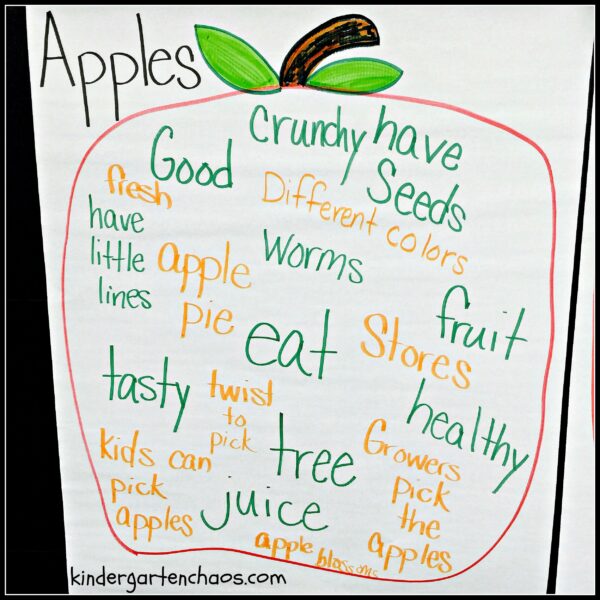 Apples
Crunchy
have
Seeds
Good
fresh
Different colors
have
little
lines
apple
pie
worms
fruit
eat
Stores
tasty
twist
to
pick
healthy
tree
kids can
pick
apples
Growers
pick
the
apples
juice
apple blossoms
kindergartenchaos.com